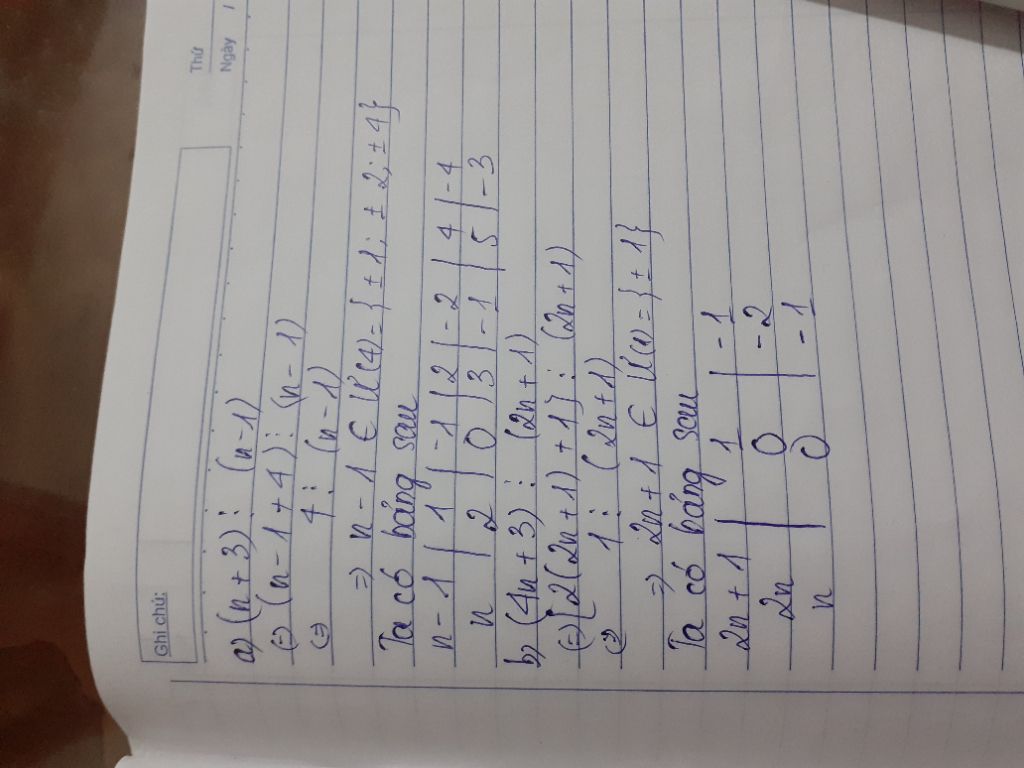 Thứ
Ngày
Ghi chú:
a) (n+3) ⋮ (n-1)
(=) (n-1+4) ⋮ (n-1)
(=) 4 ⋮ (n-1)
=) n-1 ∈ Ư(4)={±1; ±2; ±4}
Ta có bảng sau
n-1 | 1 | -1 | 2 | -2 | 4 | -4
n | 2 | 0 | 3 | -1 | 5 | -3
b) (4n+3) ⋮ (2n+1)
(=) [2(2n+1)+1] ⋮ (2n+1)
(=) 1 ⋮ (2n+1)
=) 2n+1 ∈ Ư(1)={±1}
Ta có bảng sau
2n+1 | 1 | -1
2n | 0 | -2
n | 0 | -1